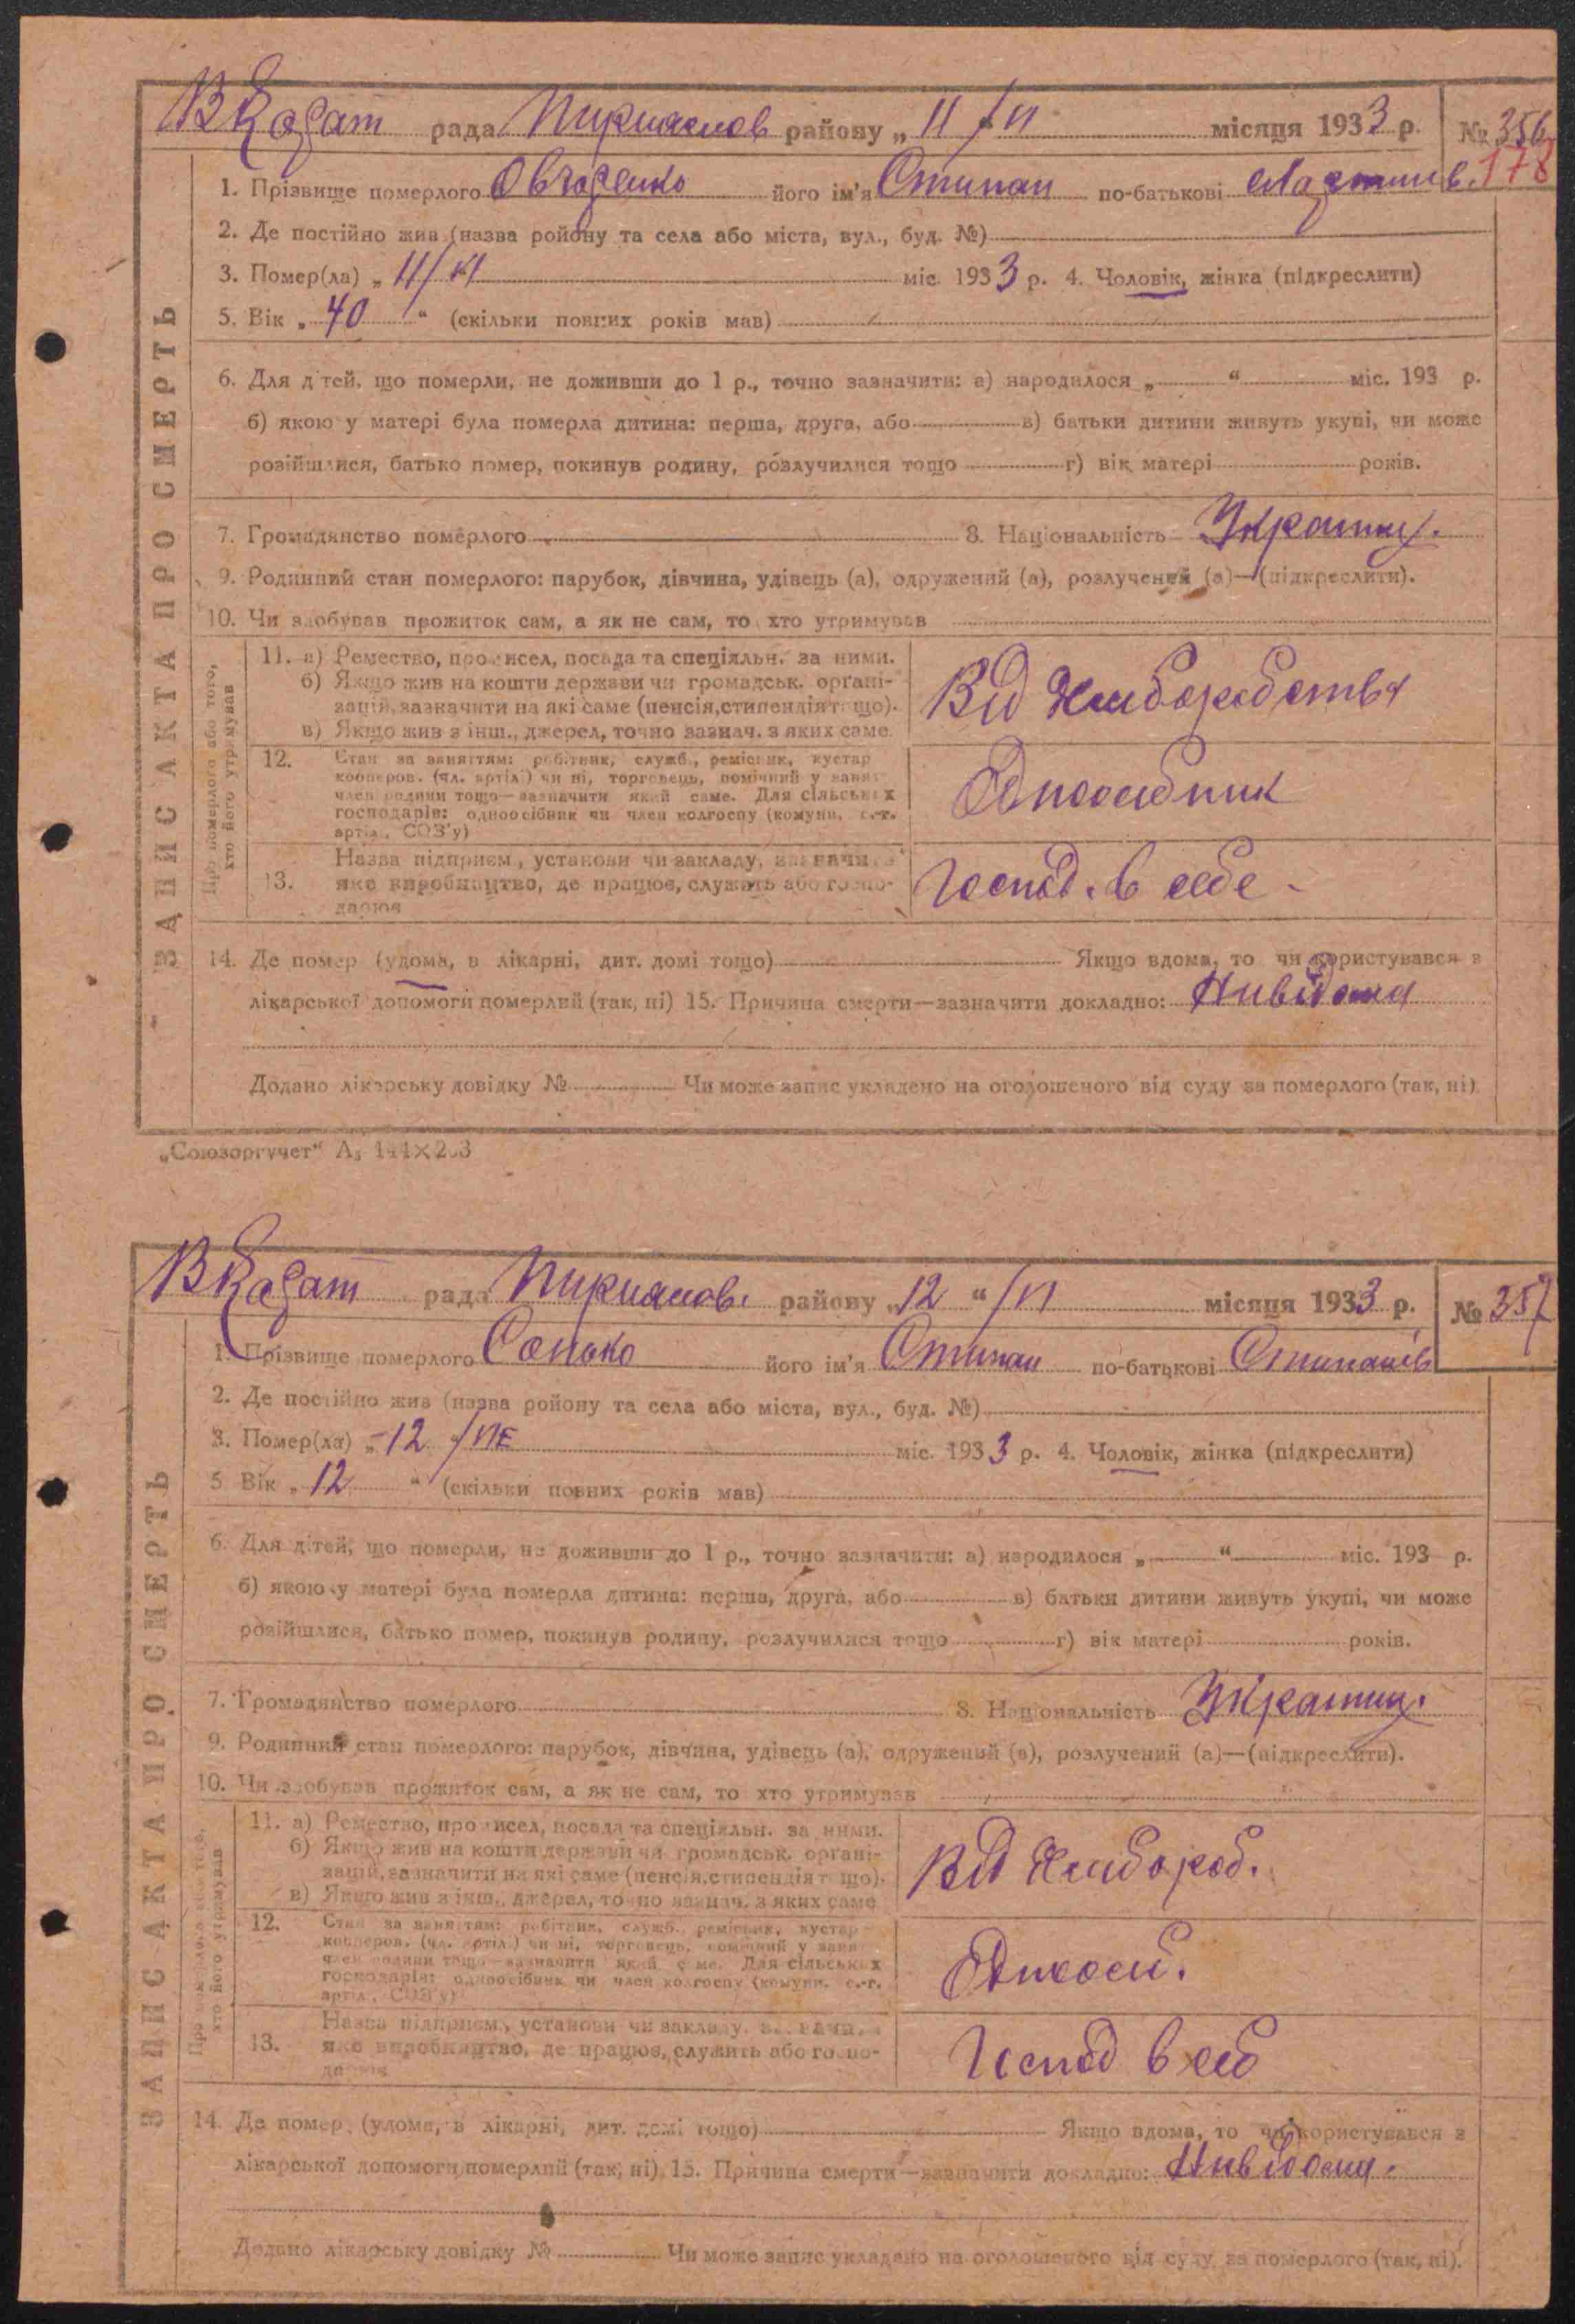 ЗАПИС АКТА ПРО СМЕРТЬ
ВКарат рада Пирияслов району „ 11 /VI місяця 1933 р. № 356
178
1. Прізвище померлого Овчаренко його ім'я Стипан по-батькові
2. Де постійно жив (назва ройону та села або міста, вул., буд. №)
3. Помер(ла) „ 11/VI міс. 1933 р. 4. Чоловік, жінка (підкреслити)
5. Вік „ 40 “ (скільки повних років мав)
6. Для дітей, що померли, не доживши до 1 р., точно зазначити: а) народилося „ “ міс. 193 р.
б) якою у матері була померла дитина: перша, друга, або в) батьки дитини живуть укупі, чи може
розійшлися, батько помер, покинув родину, розлучилися тощо г) вік матері років.
7. Громадянство померлого 8. Національність Украинц.
9. Родинний стан померлого: парубок, дівчина, удівець (а), одружений (а), розлучений (а)—(підкреслити).
10. Чи здобував прожиток сам, а як не сам, то хто утримував
Про померлого або того, хто його утримував
11. а) Ремество, промисел, посада та спеціяльн. за ними.
б) Якщо жив на кошти держави чи громадськ. органі-
зацій, зазначити на які саме (пенсія, стипендія тощо).
в) Якщо жив з інш., джерел, точно зазнач. з яких саме.
Від Хлиборобства
12. Стан за заняттям: робітник, служб., ремісник, кустар
кооперов. (чл. артілі) чи ні, торговець, помічний у занят.
член родини тощо—зазначити який саме. Для сільських
господарів: одноосібник чи член колгоспу (комуни, с.-г.
артіл., СОЗ'у)
Одноосибник
13. Назва підприєм., установи чи закладу, зазначити
яке виробництво, де працює, служить або госпо-
дарює
Господ. в себе -
14. Де помер (удома, в лікарні, дит. домі тощо) Якщо вдома, то чи користувався з
лікарської допомоги померлий (так, ні) 15. Причина смерти—зазначити докладно: Нивідома
Додано лікарську довідку № Чи може запис укладено на оголошеного від суду за померлого (так, ні).
„Союзоргучет“
ЗАПИС АКТА ПРО СМЕРТЬ
ВКарат рада Пирияслов. району „ 12 “ /VI місяця 1933 р. № 357
1. Прізвище померлого Сонько його ім'я Стипан по-батькові Стипанів
2. Де постійно жив (назва ройону та села або міста, вул., буд. №)
3. Помер(ла) „ 12 міс. 1933 р. 4. Чоловік, жінка (підкреслити)
5 Вік „ 12 “ (скільки повних років мав)
6. Для дітей, що померли, не доживши до 1 р., точно зазначити: а) народилося „ “ міс. 193 р.
б) якою у матері була померла дитина: перша, друга, або в) батьки дитини живуть укупі, чи може
розійшлися, батько помер, покинув родину, розлучилися тощо г) вік матері років.
7. Громадянство померлого 8. Національність Украинц.
9. Родинний стан померлого: парубок, дівчина, удівець (а), одружений (а), розлучений (а)—(підкреслити).
10. Чи здобував прожиток сам, а як не сам, то хто утримував
Про померлого або того, хто його утримував
11. а) Ремество, промисел, посада та спеціяльн. за ними.
б) Якщо жив на кошти держави чи громадськ. органі-
зацій, зазначити на які саме (пенсія, стипендія тощо).
в) Якщо жив з інш., джерел, точно зазнач. з яких саме
Від Хлибороб.
12. Стан за заняттям: робітник, служб., ремісник, кустар
кооперов. (чл. артіл.) чи ні, торговець, помічний у занят.
член родини тощо—зазначити який саме. Для сільських
господарів: одноосібник чи член колгоспу (комуни, с.-г.
артіл., СОЗ'у)
Одноос.
13. Назва підприєм., установи чи закладу, зазначити
яке виробництво, де працює, служить або госпо-
дарює
Господ в себ
14. Де помер (удома, в лікарні, дит. домі тощо) Якщо вдома, то чи користувався з
лікарської допомоги померлий (так, ні) 15. Причина смерти—зазначити докладно: Нивідома.
Додано лікарську довідку № Чи може запис укладено на оголошеного від суду за померлого (так, ні).